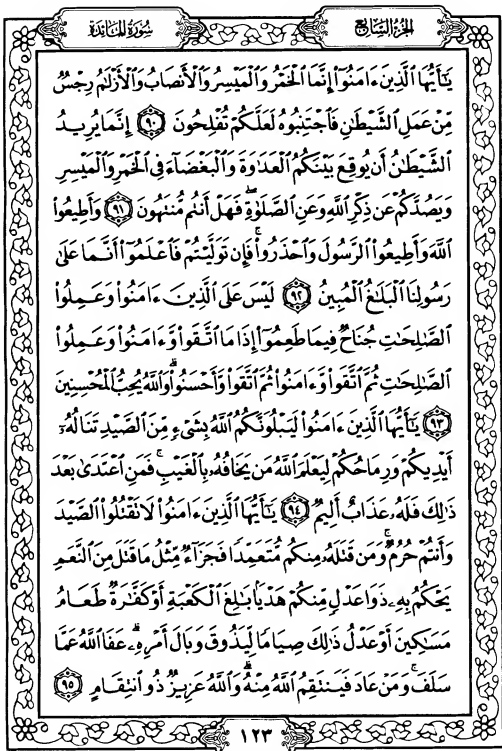 الجزء السابع
سورة المائدة
يَٰٓأَيُّهَا ٱلَّذِينَ ءَامَنُوٓاْ إِنَّمَا ٱلۡخَمۡرُ وَٱلۡمَيۡسِرُ وَٱلۡأَنصَابُ وَٱلۡأَزۡلَٰمُ رِجۡسٞ
مِّنۡ عَمَلِ ٱلشَّيۡطَٰنِ فَٱجۡتَنِبُوهُ لَعَلَّكُمۡ تُفۡلِحُونَ ٩٠ إِنَّمَا يُرِيدُ
ٱلشَّيۡطَٰنُ أَن يُوقِعَ بَيۡنَكُمُ ٱلۡعَدَٰوَةَ وَٱلۡبَغۡضَآءَ فِي ٱلۡخَمۡرِ وَٱلۡمَيۡسِرِ
وَيَصُدَّكُمۡ عَن ذِكۡرِ ٱللَّهِ وَعَنِ ٱلصَّلَوٰةِۖ فَهَلۡ أَنتُم مُّنتَهُونَ ٩١ وَأَطِيعُواْ
ٱللَّهَ وَأَطِيعُواْ ٱلرَّسُولَ وَٱحۡذَرُواْۚ فَإِن تَوَلَّيۡتُمۡ فَٱعۡلَمُوٓاْ أَنَّمَا عَلَىٰ
رَسُولِنَا ٱلۡبَلَٰغُ ٱلۡمُبِينُ ٩٢ لَيۡسَ عَلَى ٱلَّذِينَ ءَامَنُواْ وَعَمِلُواْ
ٱلصَّٰلِحَٰتِ جُنَاحٞ فِيمَا طَعِمُوٓاْ إِذَا مَا ٱتَّقَواْ وَّءَامَنُواْ وَعَمِلُواْ
ٱلصَّٰلِحَٰتِ ثُمَّ ٱتَّقَواْ وَّءَامَنُواْ ثُمَّ ٱتَّقَواْ وَّأَحۡسَنُواْۗ وَٱللَّهُ يُحِبُّ ٱلۡمُحۡسِنِينَ
٩٣ يَٰٓأَيُّهَا ٱلَّذِينَ ءَامَنُواْ لَيَبۡلُوَنَّكُمُ ٱللَّهُ بِشَيۡءٖ مِّنَ ٱلصَّيۡدِ تَنَالُهُۥٓ
أَيۡدِيكُمۡ وَرِمَاحُكُمۡ لِيَعۡلَمَ ٱللَّهُ مَن يَخَافُهُۥ بِٱلۡغَيۡبِۚ فَمَنِ ٱعۡتَدَىٰ بَعۡدَ
ذَٰلِكَ فَلَهُۥ عَذَابٌ أَلِيمٞ ٩٤ يَٰٓأَيُّهَا ٱلَّذِينَ ءَامَنُواْ لَا تَقۡتُلُواْ ٱلصَّيۡدَ
وَأَنتُمۡ حُرُمٞۚ وَمَن قَتَلَهُۥ مِنكُم مُّتَعَمِّدٗا فَجَزَآءٞ مِّثۡلُ مَا قَتَلَ مِنَ ٱلنَّعَمِ
يَحۡكُمُ بِهِۦ ذَوَا عَدۡلٖ مِّنكُمۡ هَدۡيَۢا بَٰلِغَ ٱلۡكَعۡبَةِ أَوۡ كَفَّٰرَةٞ طَعَامُ
مَسَٰكِينَ أَوۡ عَدۡلُ ذَٰلِكَ صِيَامٗا لِّيَذُوقَ وَبَالَ أَمۡرِهِۦۗ عَفَا ٱللَّهُ عَمَّا
سَلَفَۚ وَمَنۡ عَادَ فَيَنتَقِمُ ٱللَّهُ مِنۡهُۗ وَٱللَّهُ عَزِيزٞ ذُو ٱنتِقَامٍ ٩٥
١٢٣